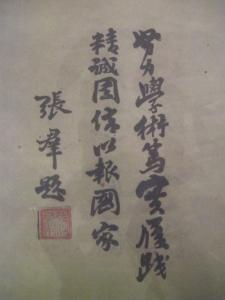 努力學術篤實履踐
精誠團信以報國家
張群題